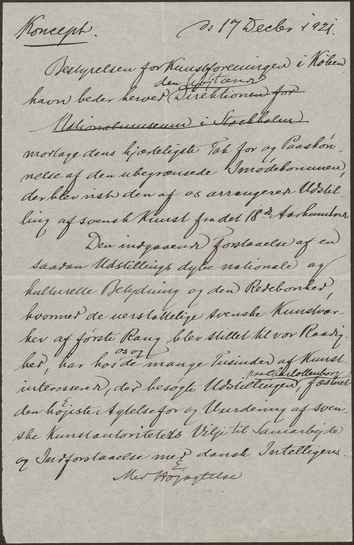 Koncept.
d. 17 Decbr 1921.
Bestyrelsen for Kunstforeningen i Köben
havn beder herved den Direktionen for
Nationalmuseum i Stockholm
modtage dens hjærteligste Tak for og Paaskøn-
nelse af den ubegrænsede Imødekommen,
der blev vist den af os arrangerede Udstil-
ling af svensk Kunst fra det 18de Aarhundrede.
Den indgaaende Forstaaelse af en
saadan Udstillings dybe nationale og
kulturelle Betydning og den Redebonhed,
hvormed de uerstattelige svenske Kunstvær-
ker af første Rang blev stillet til vor Raadig-
hed, har hos os og de mange Tusinder af Kunst
interesserede, der besøgte Udstillingen paa Charlottenborg, fæstnet
den højeste Agtelse for og Vurdering af sven-
ske Kunstautoriteters Vilje til Samarbejde
og Indforstaaelse med dansk Intelligens.
Med Højagtelse